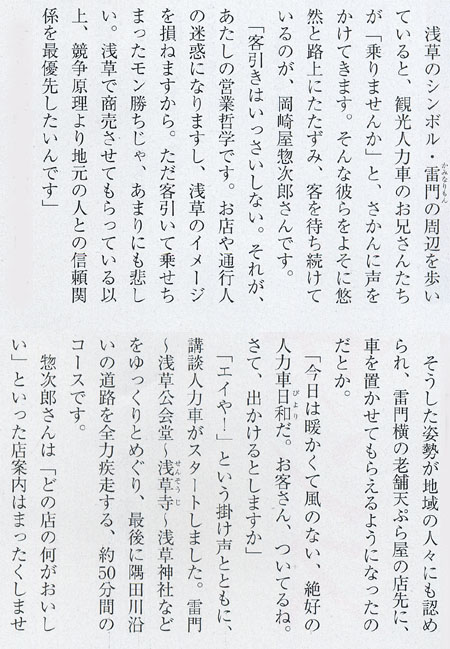 浅草のシンボル・雷門の周辺を歩い
ていると、観光人力車のお兄さんたち
が「乗りませんか」と、さかんに声を
かけてきます。そんな彼らをよそに悠
然と路上にたたずみ、客を待ち続けて
いるのが、岡崎屋惣次郎さんです。
「客引きはいっさいしない。それが、
あたしの営業哲学です。お店や通行人
の迷惑になりますし、浅草のイメージ
を損ねますから。ただ客引いて乗せち
まったモン勝ちじゃ、あまりにも悲し
い。浅草で商売させてもらっている以
上、競争原理より地元の人との信頼関
係を最優先したいんです」
そうした姿勢が地域の人々にも認め
られ、雷門横の老舗天ぷら屋の店先に、
車を置かせてもらえるようになったの
だとか。
「今日は暖かくて風のない、絶好の
人力車日和だ。お客さん、ついてるね。
さて、出かけるとしますか」
「エイや！」という掛け声とともに、
講談人力車がスタートしました。雷門
〜浅草公会堂〜浅草寺〜浅草神社など
をゆっくりとめぐり、最後に隅田川沿
いの道路を全力疾走する、約50分間の
コースです。
惣次郎さんは「どの店の何がおいし
い」といった店案内はまったくしませ